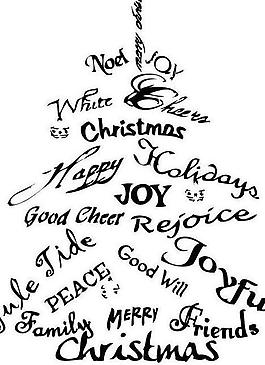 Noel JOY
White Cheers
Christmas
Happy Holidays
JOY
Good Cheer Rejoice
Yule Tide
Good Will
Joyfu
PEACE
Family MERRY Friends
Christmas